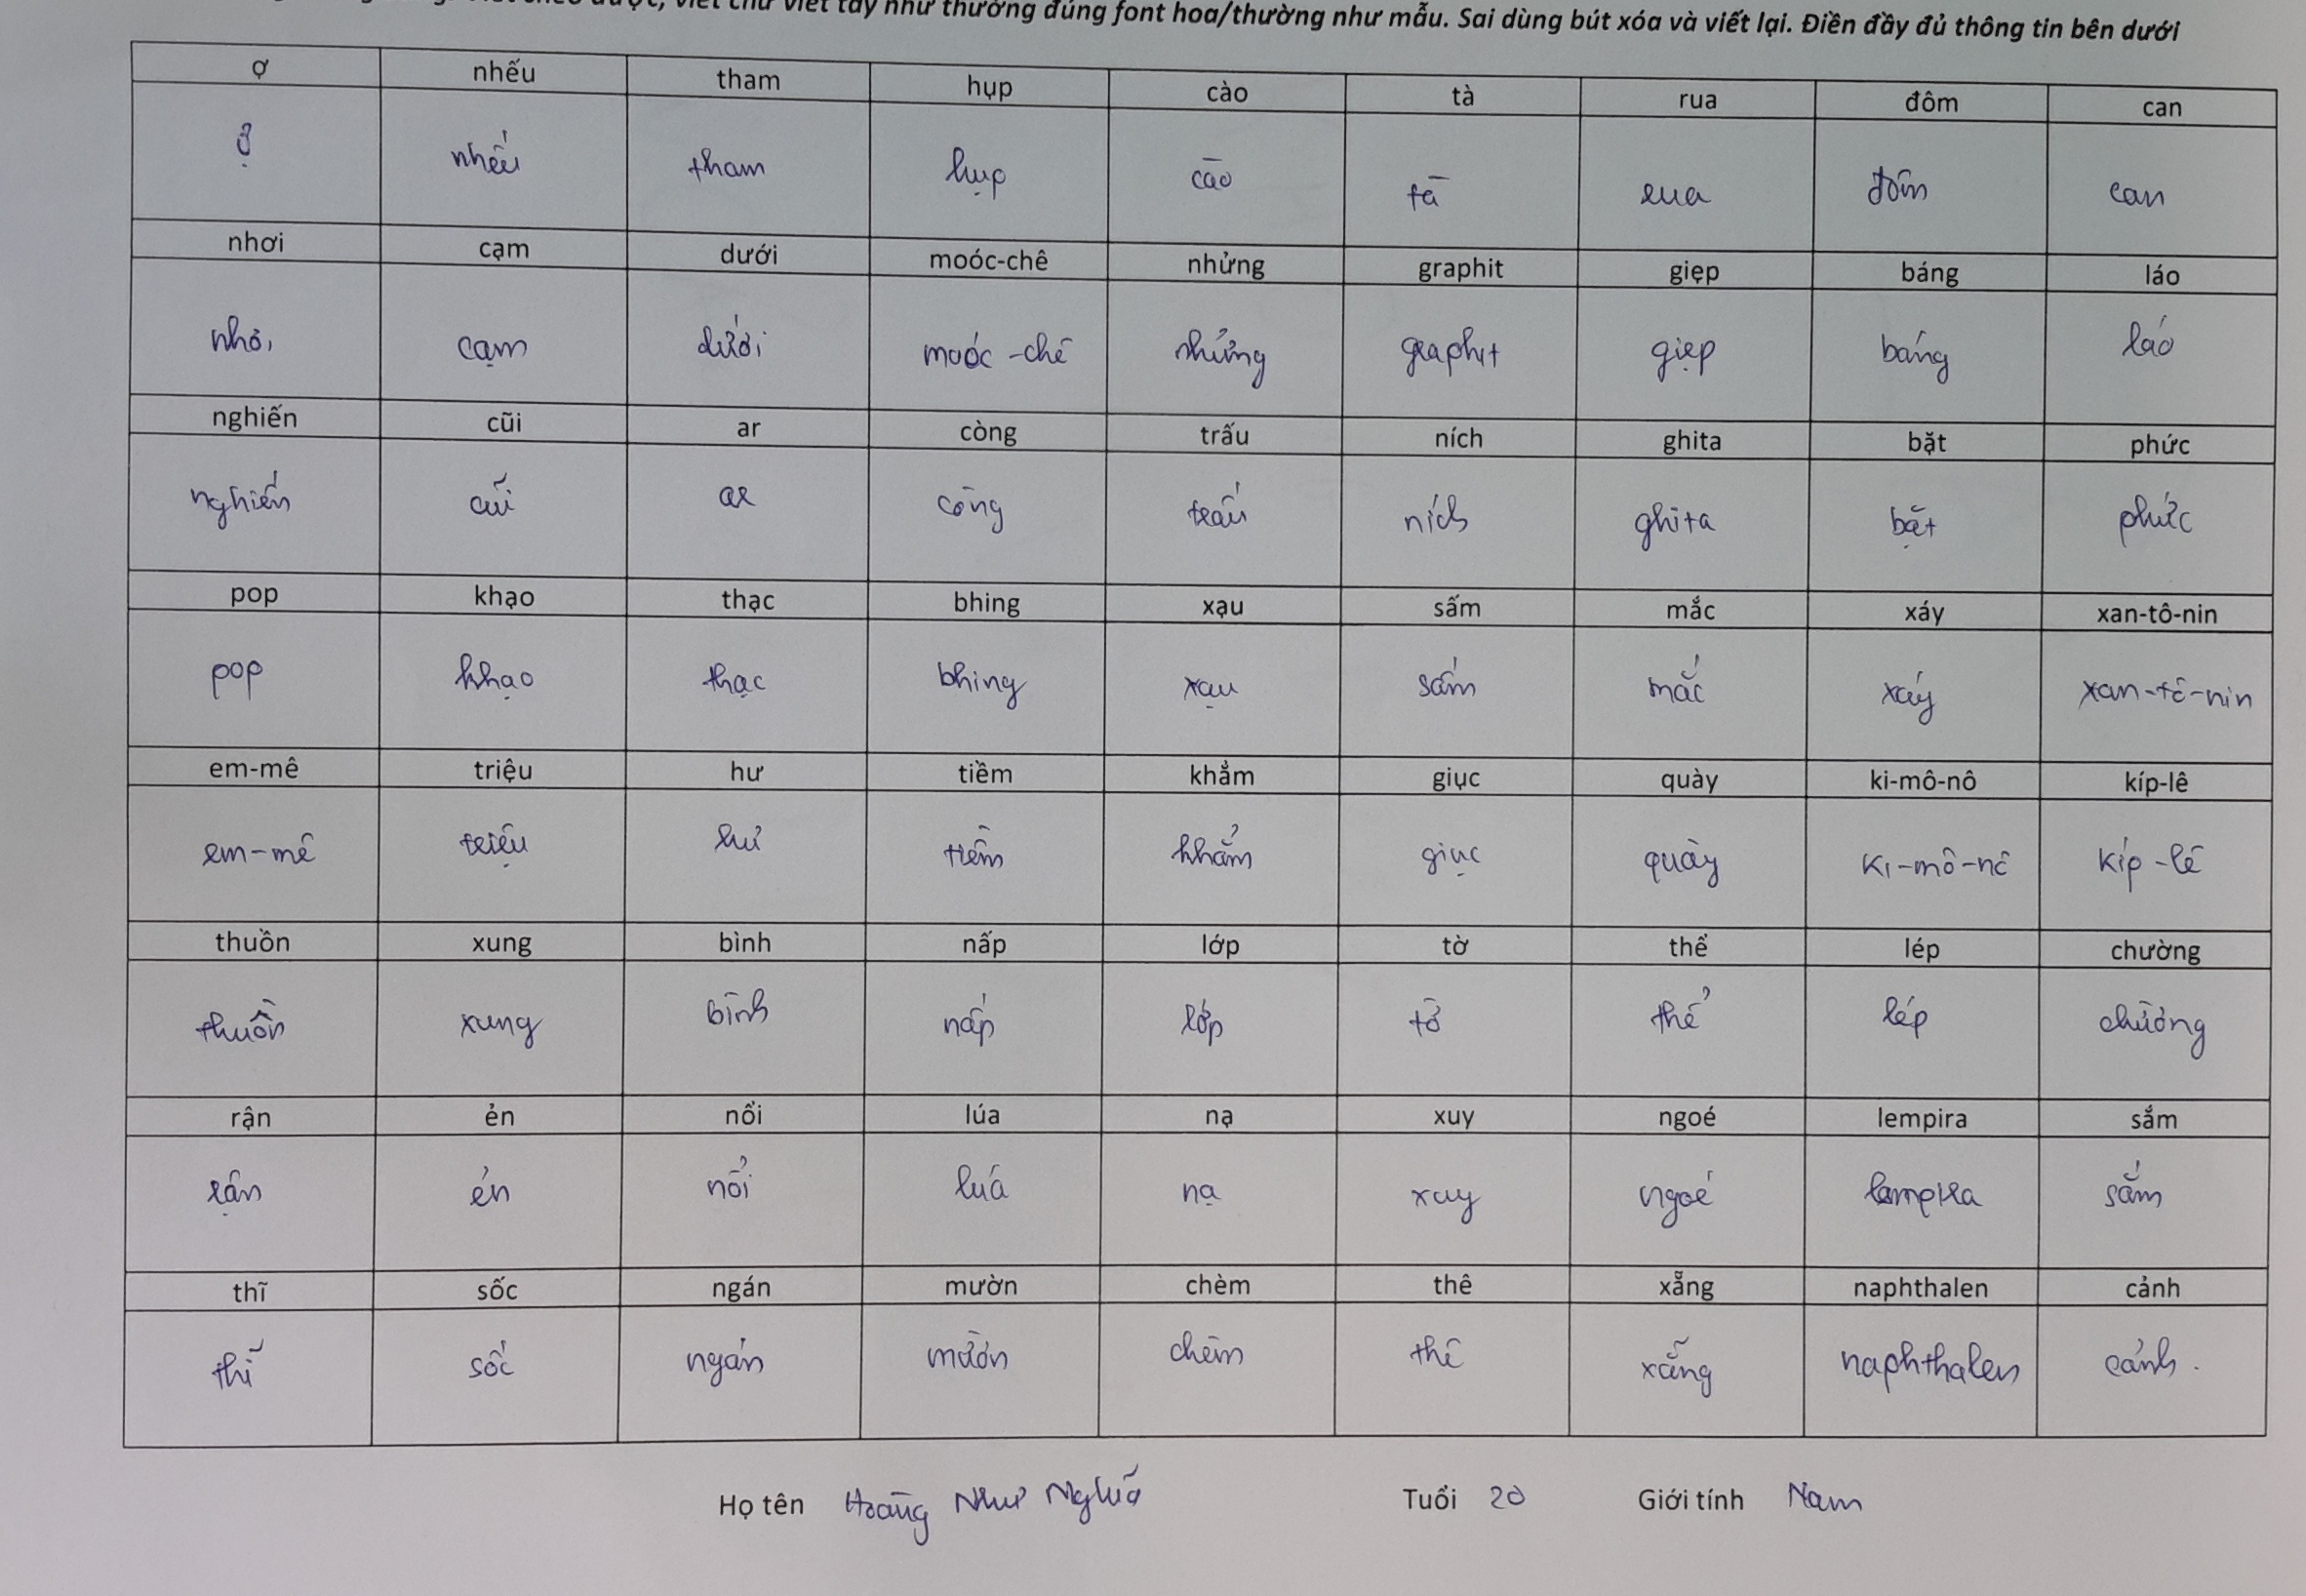 viết chữ viết tay như thường đúng font hoa/thường như mẫu. Sai dùng bút xóa và viết lại. Điền đầy đủ thông tin bên dưới
ợ nhếu tham hụp cào tà rua đôm can
ợ nhếu tham hụp cào tà rua đôm can
nhơi cạm dưới moóc-chê nhửng graphit giẹp báng láo
nhơi cạm dưới moóc-chê nhửng graphit giẹp báng láo
nghiến cũi ar còng trấu ních ghita bặt phức
nghiến cũi ar còng trấu ních ghita bặt phức
pop khạo thạc bhing xạu sấm mắc xáy xan-tô-nin
pop khạo thạc bhing xạu sấm mắc xáy xan-tô-nin
em-mê triệu hư tiềm khẳm giục quày ki-mô-nô kíp-lê
em-mê triệu hư tiềm khẳm giục quày ki-mô-nô kíp-lê
thuồn xung bình nấp lớp tờ thể lép chường
thuồn xung bình nấp lớp tờ thể lép chường
rận ẻn nổi lúa nạ xuy ngoé lempira sắm
rận ẻn nổi lúa nạ xuy ngoé lempira sắm
thĩ sốc ngán mườn chèm thê xẵng naphthalen cảnh
thĩ sốc ngán mườn chèm thê xẵng naphthalen cảnh.
Họ tên Hoàng Như Nghĩa Tuổi 20 Giới tính Nam